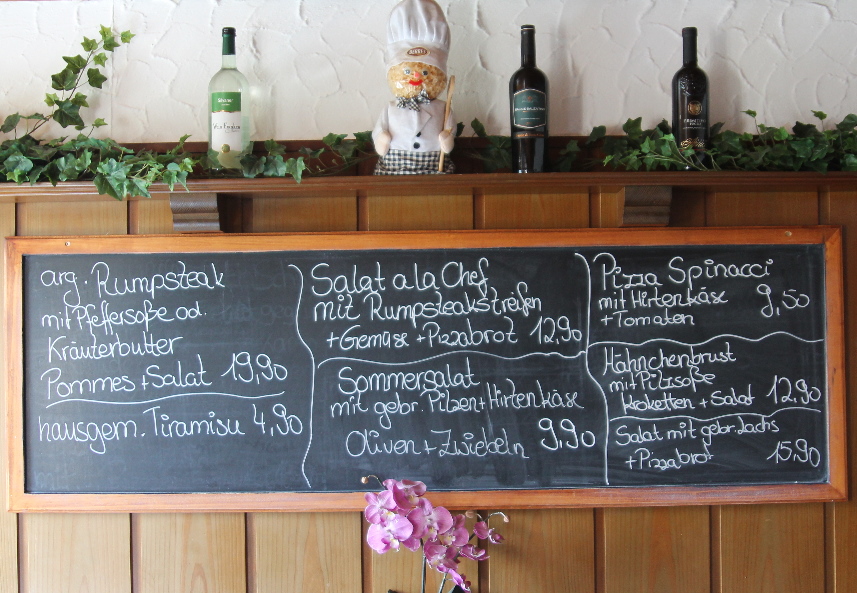 arg. Rumpsteak
mit Pfeffersoße od.
Kräuterbutter
Pommes + Salat 19,90
hausgem. Tiramisu 4,90
Salat a la Chef
mit Rumpsteakstreifen
+ Gemüse + Pizzabrot 12,90
Sommersalat
mit gebr. Pilzen + Hirtenkäse
Oliven + Zwiebeln 9,90
Pizza Spinacci
mit Hirtenkäse 9,50
+ Tomaten
Hähnchenbrust
mit Pilzsoße
kroketten + Salat 12,90
Salat mit gebr. Lachs
+ Pizzabrot 15,90